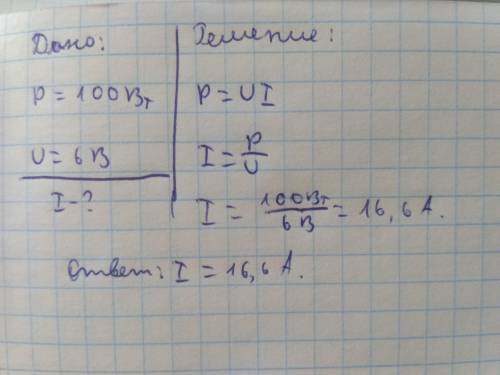 Дано:
P = 100 Вт
U = 6 В
I - ?
Решение:
P = U I
I = P/U
I = 100Вт/6 В = 16,6 А.
Ответ: I = 16,6 А.